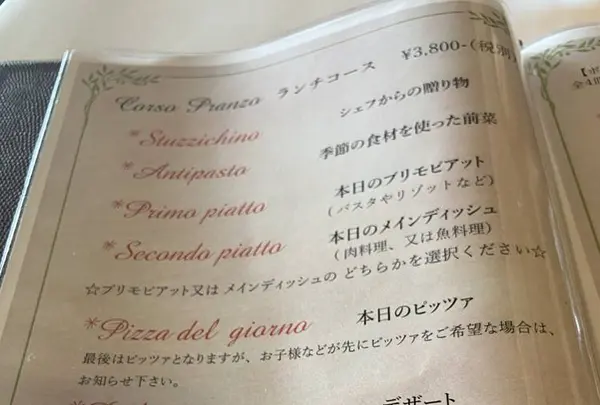 Corso Pranzo ランチコース ¥3,800-(税別)
*Stuzzichino シェフからの贈り物
*Antipasto 季節の食材を使った前菜
*Primo piatto 本日のプリモピアット
(パスタやリゾットなど)
*Secondo piatto 本日のメインディッシュ
(肉料理、又は魚料理)
☆プリモピアット又は メインディッシュの どちらかを選択ください☆
*Pizza del giorno 本日のピッツァ
最後はピッツァとなりますが、お子様などが先にピッツァをご希望な場合は、
お知らせ下さい。
デザート